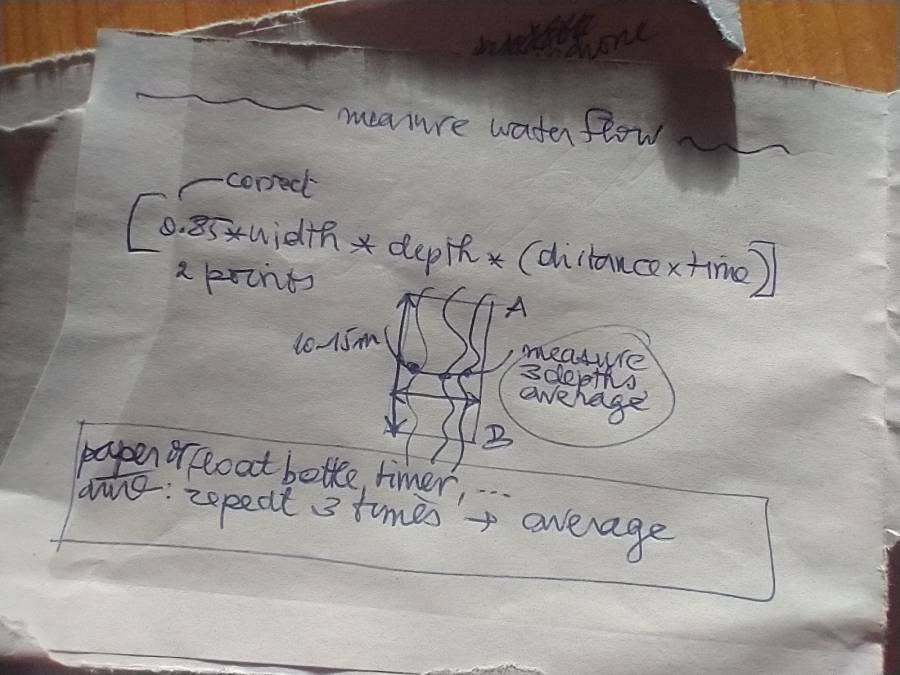 phone
measure water flow
correct
[0.85*width * depth * (distance × time)]
2 points
A
10-15m
measure
3 depths
average
B
paper or float bottle, timer, ...
time: repeat 3 times → average